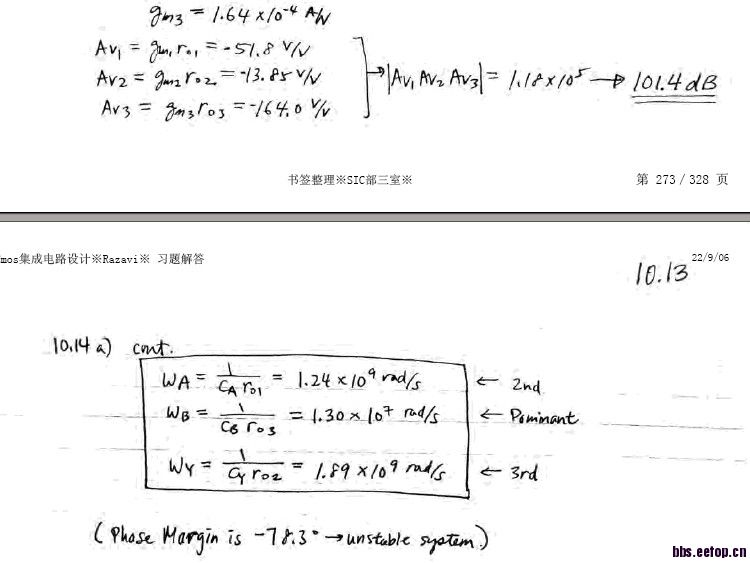 gm3 = 1.64 × 10⁻⁴ A/V
Av1 = gm1 ro1 = -51.8 V/V
Av2 = gm2 ro2 = -13.85 V/V → |Av1 Av2 Av3| = 1.18 × 10⁵ → 101.4 dB
Av3 = gm3 ro3 = -164.0 V/V
书签整理※SIC部三室※ 第 273 / 328 页
mos集成电路设计※Razavi※ 习题解答 22/9/06
10.13
10.14 a) cont.
ωA = 1/(CA ro1) = 1.24 × 10⁹ rad/s ← 2nd
ωB = 1/(CB ro3) = 1.30 × 10⁷ rad/s ← Dominant
ωY = 1/(CY ro2) = 1.89 × 10⁹ rad/s ← 3rd
(Phase Margin is -78.3° → unstable system)
bbs.eetop.cn